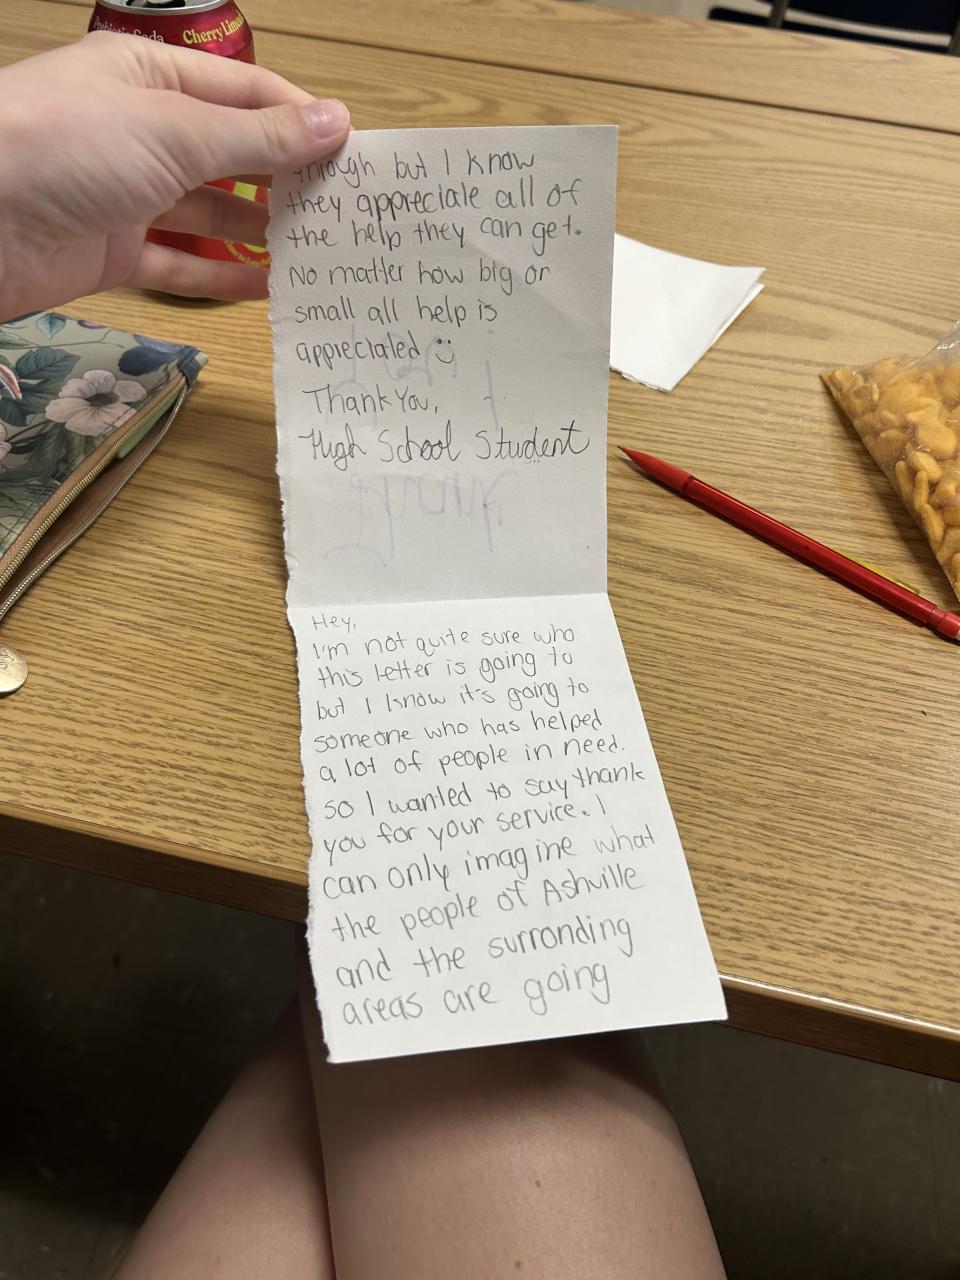 Prebiotic Soda
Cherry Lime
through but I know
they appreciate all of
the help they can get.
No matter how big or
small all help is
appreciated
Thank You,
High School Student
Hey,
I'm not quite sure who
this letter is going to
but I know it's going to
someone who has helped
a lot of people in need.
so I wanted to say thank
you for your service. I
can only imagine what
the people of Ashville
and the surronding
areas are going